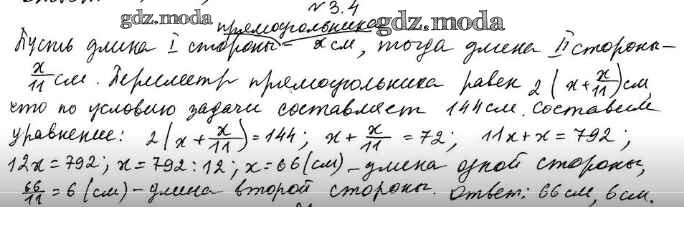 № 3.4
gdz.moda
прямоугольника gdz.moda
Пусть длина I стороны – x см, тогда длина II стороны –
x/11 см. Периметр прямоугольника равен 2(x+x/11) см,
что по условию задачи составляет 144 см. Составим
уравнение: 2(x+x/11)=144; x+x/11=72; 11x+x=792;
12x=792; x=792:12; x=66 (см) – длина одной стороны,
66/11=6 (см) – длина второй стороны. Ответ: 66 см, 6 см.